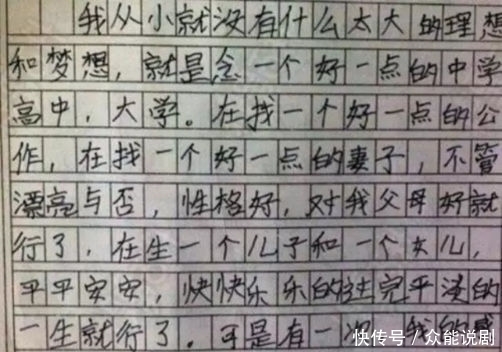 我从小就没有什么太大的理想
和梦想，就是念一个好一点的中学
高中，大学。在找一个好一点的公
作，在找一个好一点的妻子，不管
漂亮与否，性格好，对我父母好就
行了，在生一个儿子和一个女儿，
平平安安，快快乐乐的过完平淡的
一生就行了。可是有一次，我的感
快传号/众能说剧